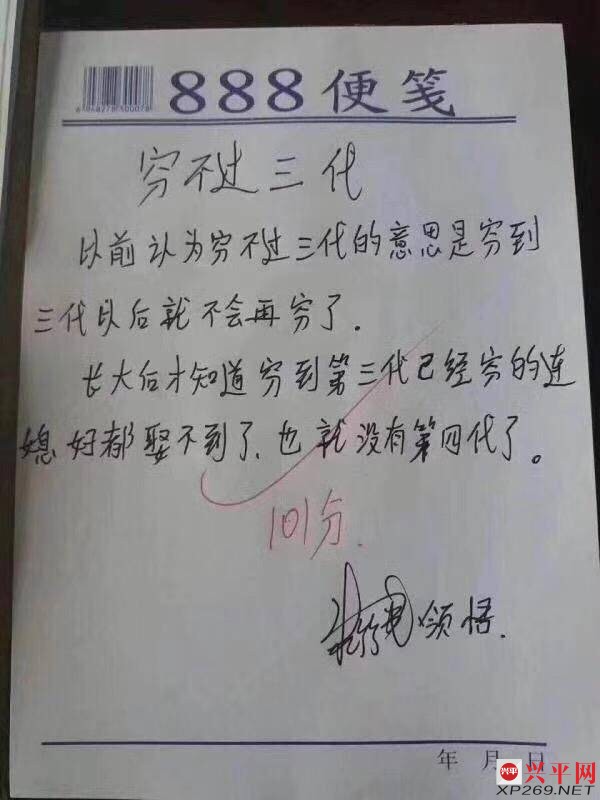 888便笺
穷不过三代
以前认为穷不过三代的意思是穷到
三代以后就不会再穷了.
长大后才知道穷到第三代已经穷的连
媳妇都娶不到了、也就没有第四代了。
101分.
领悟.
年 月 日
兴平 兴平网
XP269.NET